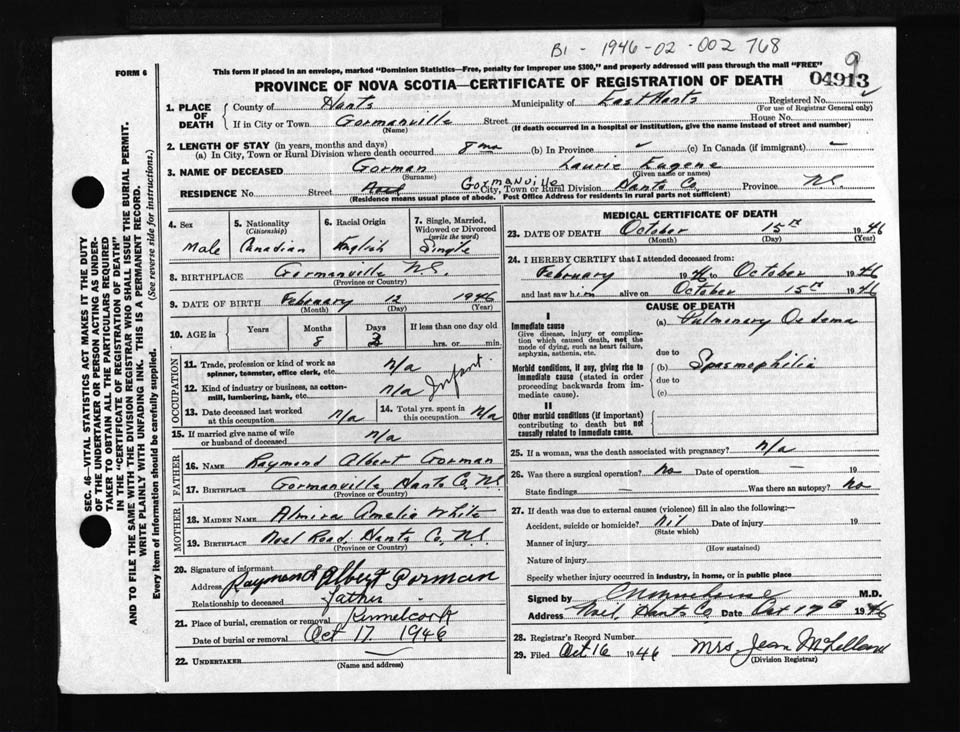 B1 - 1946-02-002 768
9
FORM 6
This form if placed in an envelope, marked "Dominion Statistics—Free, penalty for improper use $300," and properly addressed will pass through the mail "FREE"
PROVINCE OF NOVA SCOTIA—CERTIFICATE OF REGISTRATION OF DEATH
04913
SEC. 46—VITAL STATISTICS ACT MAKES IT THE DUTY
OF THE UNDERTAKER OR PERSON ACTING AS UNDER-
TAKER TO OBTAIN ALL THE PARTICULARS REQUIRED
IN THE "CERTIFICATE OF REGISTRATION OF DEATH"
AND TO FILE THE SAME WITH THE DIVISION REGISTRAR WHO SHALL ISSUE THE BURIAL PERMIT.
WRITE PLAINLY WITH UNFADING INK. THIS IS A PERMANENT RECORD.
Every item of information should be carefully supplied. (See reverse side for instructions.)
1. PLACE OF DEATH
County of Hants Municipality of East Hants Registered No.
(For use of Registrar General only)
If in City or Town Gormanville Street House No.
(Name) (If death occurred in a hospital or institution, give the name instead of street and number)
2. LENGTH OF STAY (in years, months and days)
(a) In City, Town or Rural Division where death occurred 8 mo (b) In Province (c) In Canada (if immigrant)
3. NAME OF DECEASED Gorman Laurie Eugene
(Surname) (Given name or names)
RESIDENCE No. Street Gormanville City, Town or Rural Division Hants Co. Province N.S.
(Residence means usual place of abode. Post Office Address for residents in rural parts not sufficient)
4. Sex Male
5. Nationality (Citizenship) Canadian
6. Racial Origin English
7. Single, Married, Widowed or Divorced (write the word) Single
8. BIRTHPLACE Gormanville N.S.
(Province or Country)
9. DATE OF BIRTH February 12 1946
(Month) (Day) (Year)
10. AGE in Years Months 8 Days 3 If less than one day old
hrs. or min.
OCCUPATION
11. Trade, profession or kind of work as spinner, teamster, office clerk, etc. n/a
12. Kind of industry or business, as cotton-mill, lumbering, bank, etc. n/a Infant
13. Date deceased last worked at this occupation n/a
14. Total yrs. spent in this occupation n/a
15. If married give name of wife or husband of deceased n/a
FATHER
16. NAME Raymond Albert Gorman
17. BIRTHPLACE Gormanville, Hants Co, N.S.
(Province or Country)
MOTHER
18. MAIDEN NAME Almira Amelia White
19. BIRTHPLACE Noel Road, Hants Co, N.S.
(Province or Country)
20. Signature of informant Raymond Albert Gorman
Address
Relationship to deceased Father
21. Place of burial, cremation or removal Kennetcook
Date of burial or removal Oct 17 1946
22. UNDERTAKER
(Name and address)
MEDICAL CERTIFICATE OF DEATH
23. DATE OF DEATH October 15th 1946
(Month) (Day) (Year)
24. I HEREBY CERTIFY that I attended deceased from:
February 1946 to October 1946
and last saw him alive on October 15th 1946
CAUSE OF DEATH
I
Immediate cause (a) Pulmonary Oedema
Give disease, injury or complication which caused death, not the mode of dying, such as heart failure, asphyxia, asthenia, etc.
due to
Morbid conditions, if any, giving rise to immediate cause (stated in order proceeding backwards from immediate cause).
(b) Spasmophilia
due to
(c)
II
Other morbid conditions (if important) contributing to death but not causally related to immediate cause.
25. If a woman, was the death associated with pregnancy? n/a
26. Was there a surgical operation? No Date of operation — 19
State findings — Was there an autopsy? No
27. If death was due to external causes (violence) fill in also the following:—
Accident, suicide or homicide? nil Date of injury 19
(State which)
Manner of injury
(How sustained)
Nature of injury
Specify whether injury occurred in industry, in home, or in public place
Signed by M.D.
Address Noel, Hants Co. Date Oct 17th 1946
28. Registrar's Record Number
29. Filed Oct 16 1946 Mrs Jean McLellan
(Division Registrar)